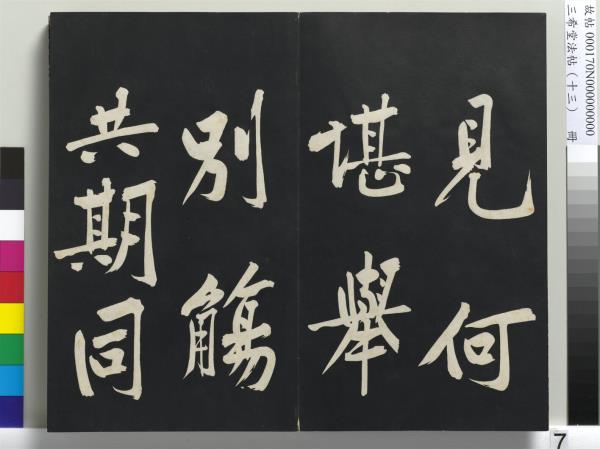 見何
堪舉
別觴
共期同
故帖 000170N000000000
三希堂法帖（十三） 冊
7